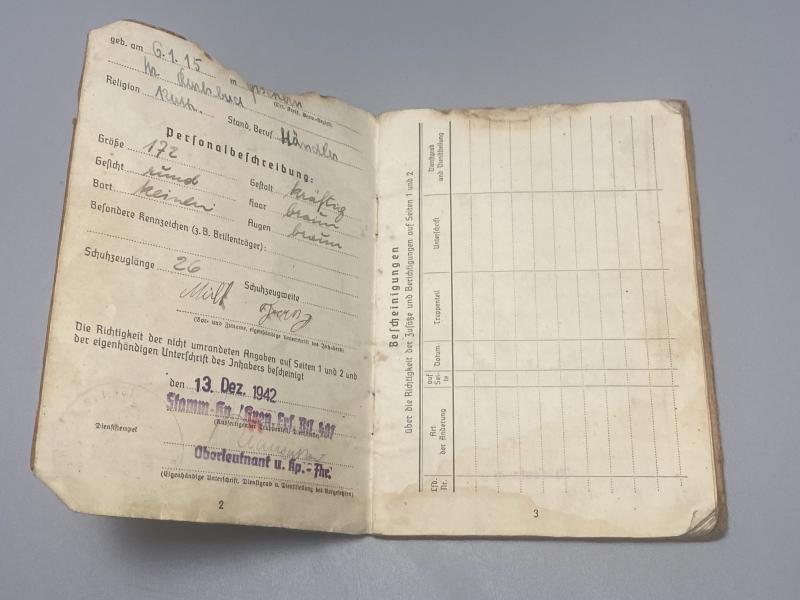 geb. am 6.1.15 in
Religion kath. Stand, Beruf Händler
Personalbeschreibung:
Größe 172
Gesicht rund Gestalt kräftig
Bart keinen Haar braun
Besondere Kennzeichen (z.B. Brillenträger): Augen braun
Schuhzeuglänge 26 Schuhzeugweite
Franz
(Vor- und Zuname, eigenhändige Unterschrift des Inhabers)
Die Richtigkeit der nicht umrandeten Angaben auf Seiten 1 und 2 und
der eigenhändigen Unterschrift des Inhabers bescheinigt
den 13. Dez. 1942
Stamm-Kp./Gren. Ers. Btl.
Dienststempel
Oberleutnant u. Kp.-Fhr.
(Eigenhändige Unterschrift, Dienstgrad u. Dienststellung des Vorgesetzten)
2
Bescheinigungen
über die Richtigkeit der Zusätze und Berichtigungen auf Seiten 1 und 2
Lfd. Nr.
Art der Änderung
auf Seite
Datum
Truppenteil
Unterschrift
Dienstgrad und Dienststellung
3